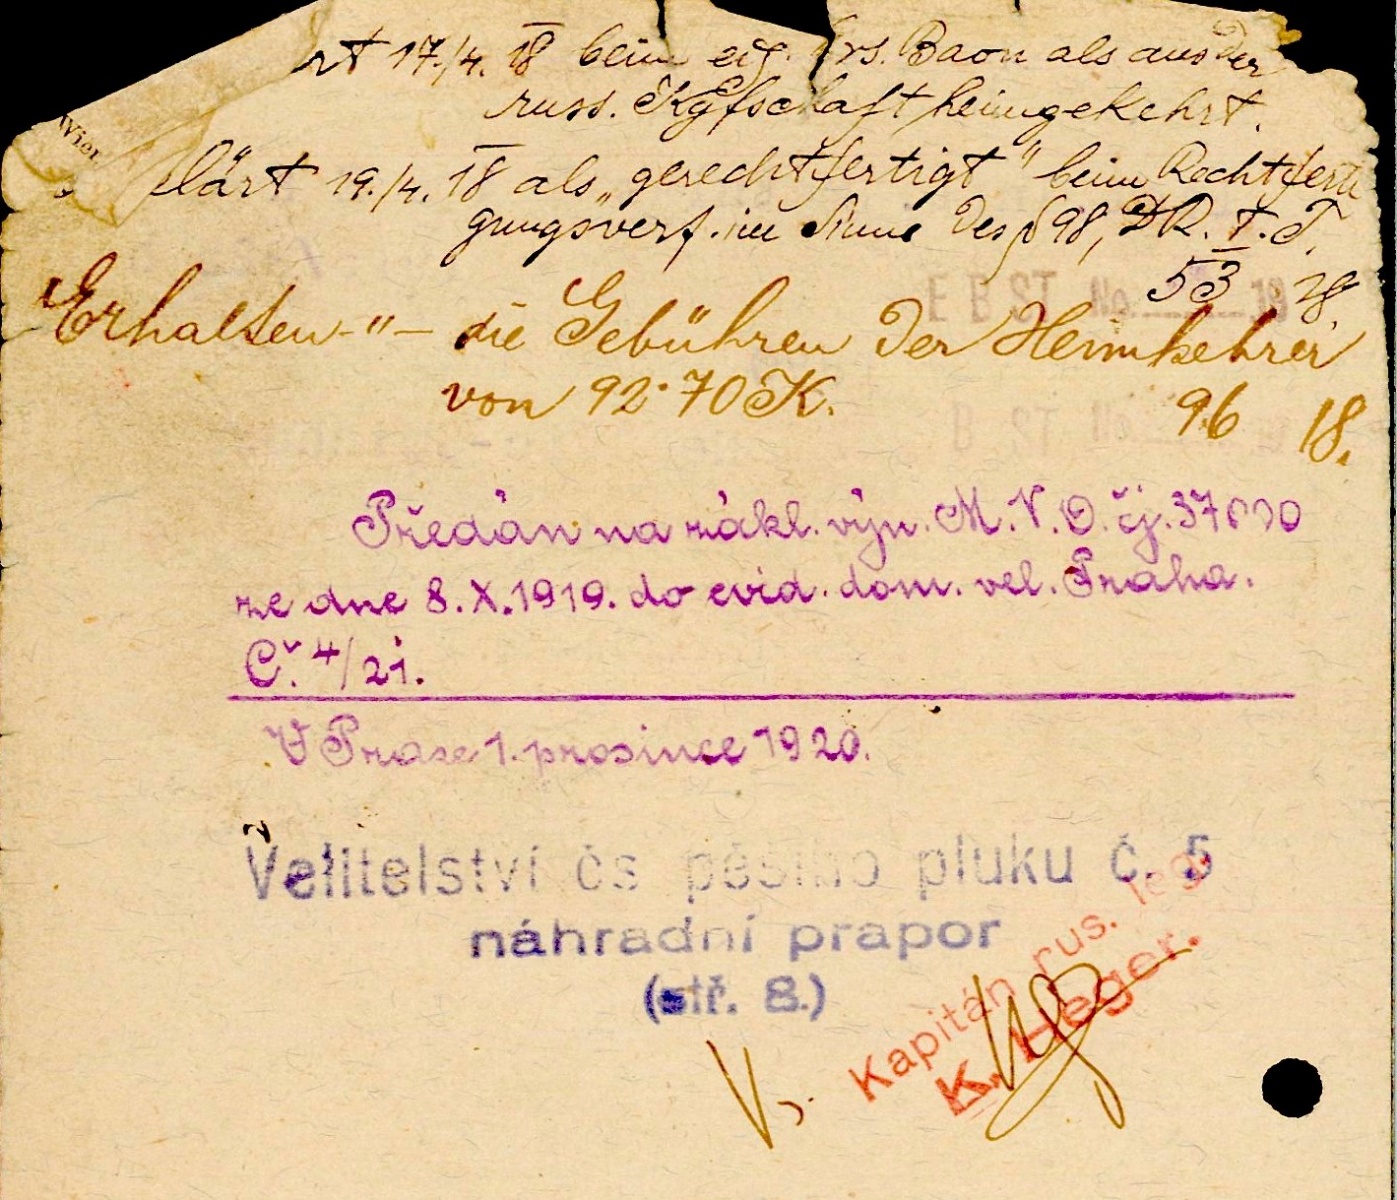 rt 17./4. 18 beim eig. Ers. Baon als aus der
russ. Kgfschaft heimgekehrt.
Wien
klärt 19./4. 18 als „gerechtfertigt" beim Rechtferti
gungsverf. im Sinne des § 98, DR. I. T.
53 28.
E B ST No. 19
Erhalten -"- die Gebühren der Heimkehrer
von 92·70 K. 9.6 18.
B ST No
Předán na zákl. výn. M.V.O. čj.
ze dne 8.X.1919. do evid. dom. vel. Praha.
Č. 4/21.
V Praze 1. prosince 1920.
Velitelství čs pěšího pluku č. 5
náhradní prapor
(stř. 8.)
Kapitán rus. leg.
K. Heger.